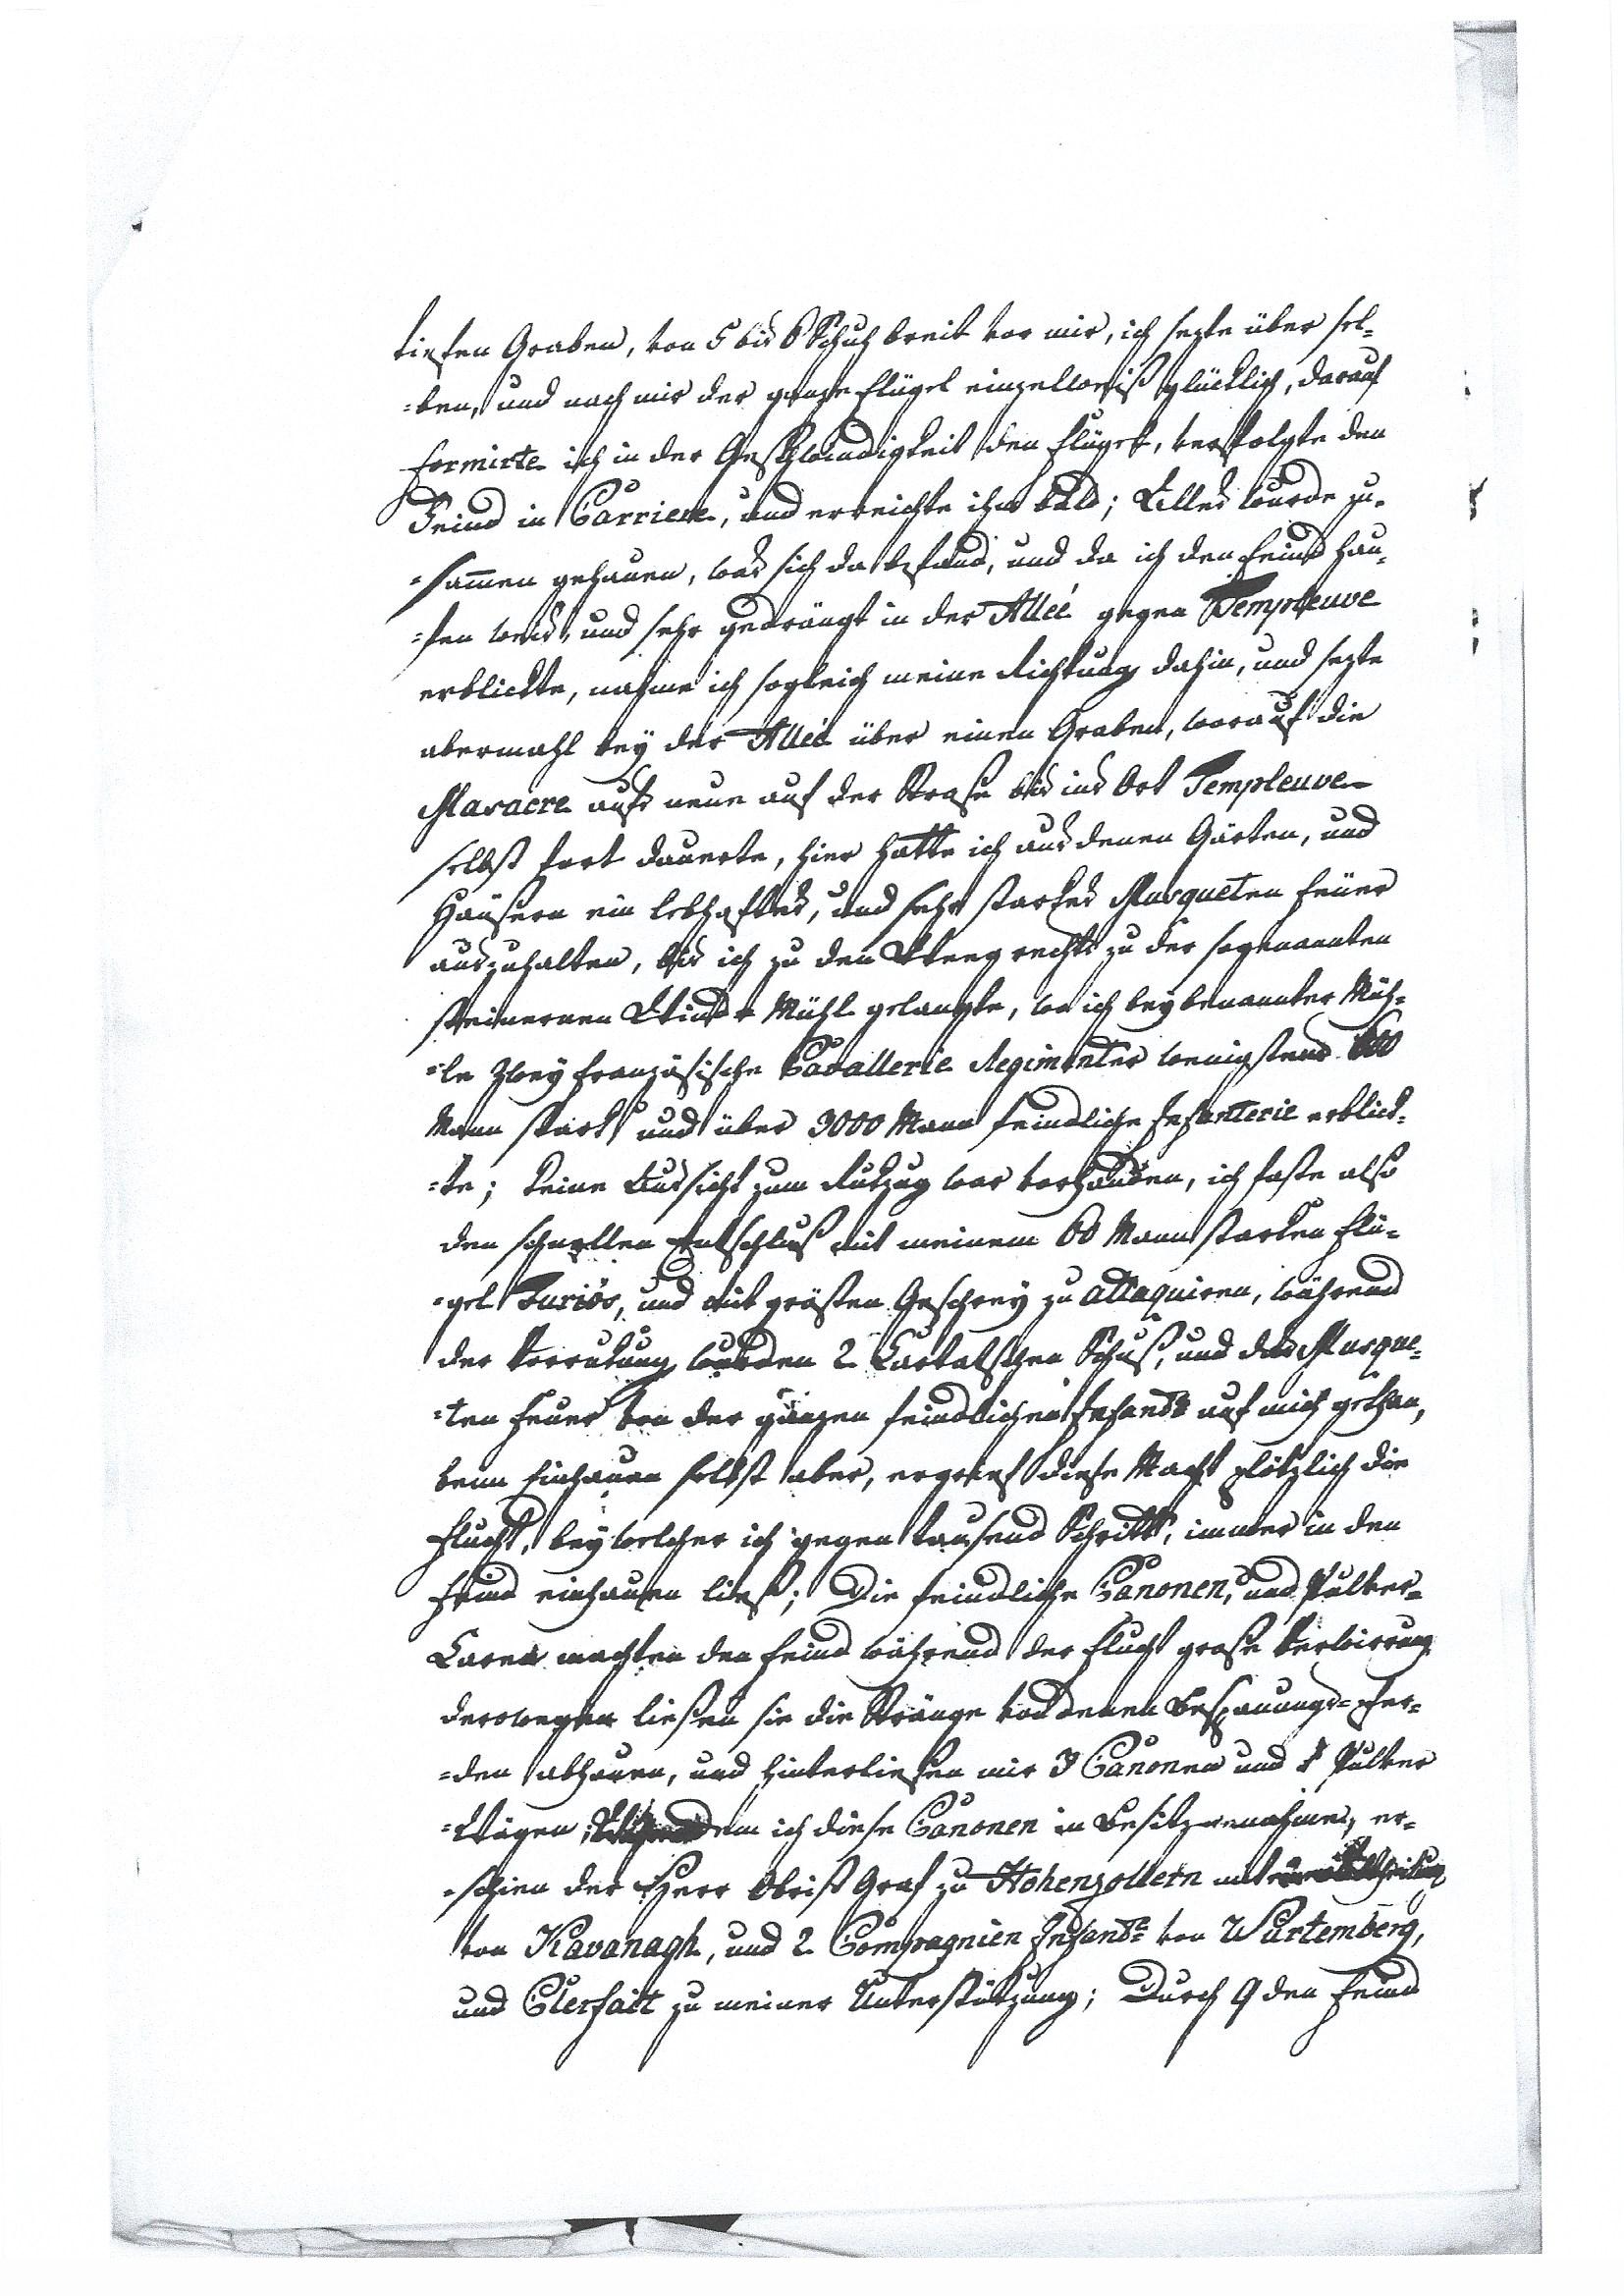 tiefen Graben, von 5 bis 6 Schuh breit vor mir, ich sezte über sel-
=ben, und nach mir der ganze Flügel einzelweiß glücklich, darauf
formirte ich in der Geschwindigkeit den Flügel, verfolgte den
Feind in Carriere, und erreichte ihn bald; Alles wurde zu-
=sam̄en gehauen, was sich da befand, und da ich den Feind hau-
=fen weis, und sehr gedrängt in der Alleé gegen Templeuve
erblickte, nahme ich sogleich meine Richtung dahin, und sezte
abermahl bey der Alleé über einen Graben, worauf die
Masacre aufs neue auf der Straße bis ins Ort Templeuve
selbst fort dauerte, hier hatte ich aus denen Gärten, und
Häusern ein lebhaftes, und sehr starkes Musqueten Feüer
auszuhalten, bis ich zu den Weeg rechts zu der sogenannten
steinernen Wind Mühl gelangte, wo ich bey benannter Müh-
=le zwey französische Cavallerie Regimenter wenigstens 600
Mann stark, und über 3000 Mann feindliche Infanterie erblick-
=te; keine Aussicht zum Rukzug war vorhanden, ich faste also
den schnellen Entschluß mit meinem 60 Mann starken Flü-
=gel Furiös, und mit grösten Geschrey zu attaquiren, während
der Vorrukung wurden 2 Kartatschen Schuß, und das Musque-
=ten Feuer von der ganzen feindlichen Infant: auf mich gethan,
beim Einhauen selbst aber, ergrief diese Macht plötzlich die
Flucht, bey welcher ich gegen tausend Schritt, immer in den
Feind einhauen ließ; Die feindliche Canonen, und Pulver-
Karen machten den Feind während der Flucht große Verwirrung
derowegen ließen sie die Stränge von denen Bespanungs-Pfer-
=den abhauen, und hinterließen mir 3 Canonen und Pulver
=Wägen; dem ich diese Canonen in Besitz nahme, er-
=schien der Herr Obrist Graf zu Hohenzollern mit
von Kavanagh, und 2 Compagnien Infant: von Würtemberg,
und Clerfait zu meiner Unterstützung; Durch 9 den Feind